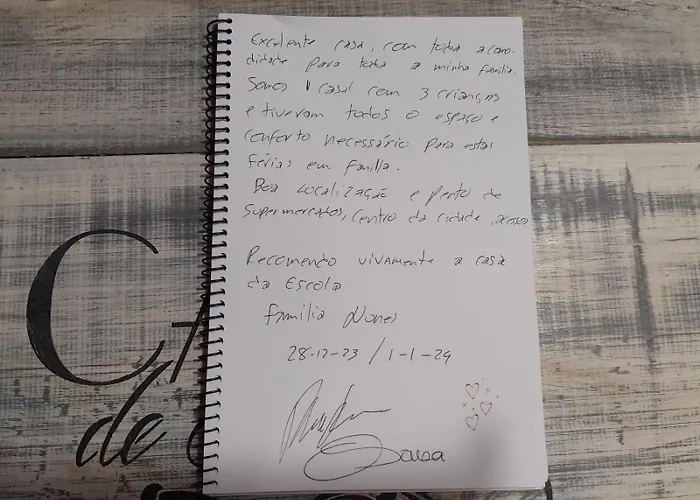 Excelente casa, com toda a como-
didade para toda a minha família.
Somos 1 casal com 3 crianças
e tiveram todos o espaço e
conforto necessário para estas
férias em família.
Boa localização e perto de
supermercados, centro da cidade, acessos
Recomendo vivamente a casa
da Escola
Família Nunes
28-12-23 / 1-1-24
Sousa
CA
de